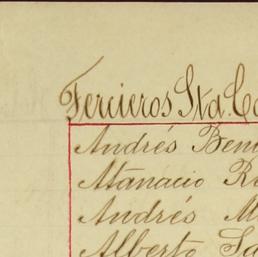 Fercieros Sta. Ca
Andrés Beni
Atanacio Re
Andrés M
Alberto Sa